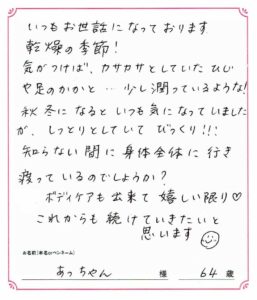 いつもお世話になっております
乾燥の季節!
気がつけば、カサカサとしていたひじ
や足のかかと…少し潤っているような!
秋冬になるといつも気になっていました
が、しっとりとしていてびっくり!!!
知らない間に身体全体に行き
渡っているのでしょうか?
ボディケアも出来て嬉しい限り♡
これからも続けていきたいと
思います
☆名前(本名orペンネーム)
あっちゃん 様 64歳